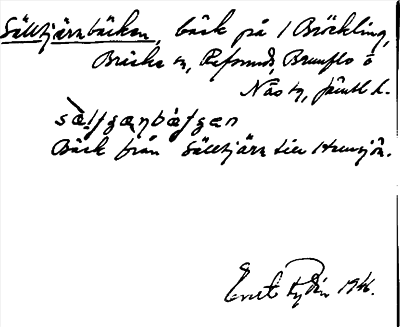 Sälltjärnbäcken, bäck på 1 Bräckling,
Bräcke sn, Refsunds, Brunflo o
Näs sn, Jämtl l.
Bäck från Sälltjärn till Hemsjön.
Ernst Rydén 1946.